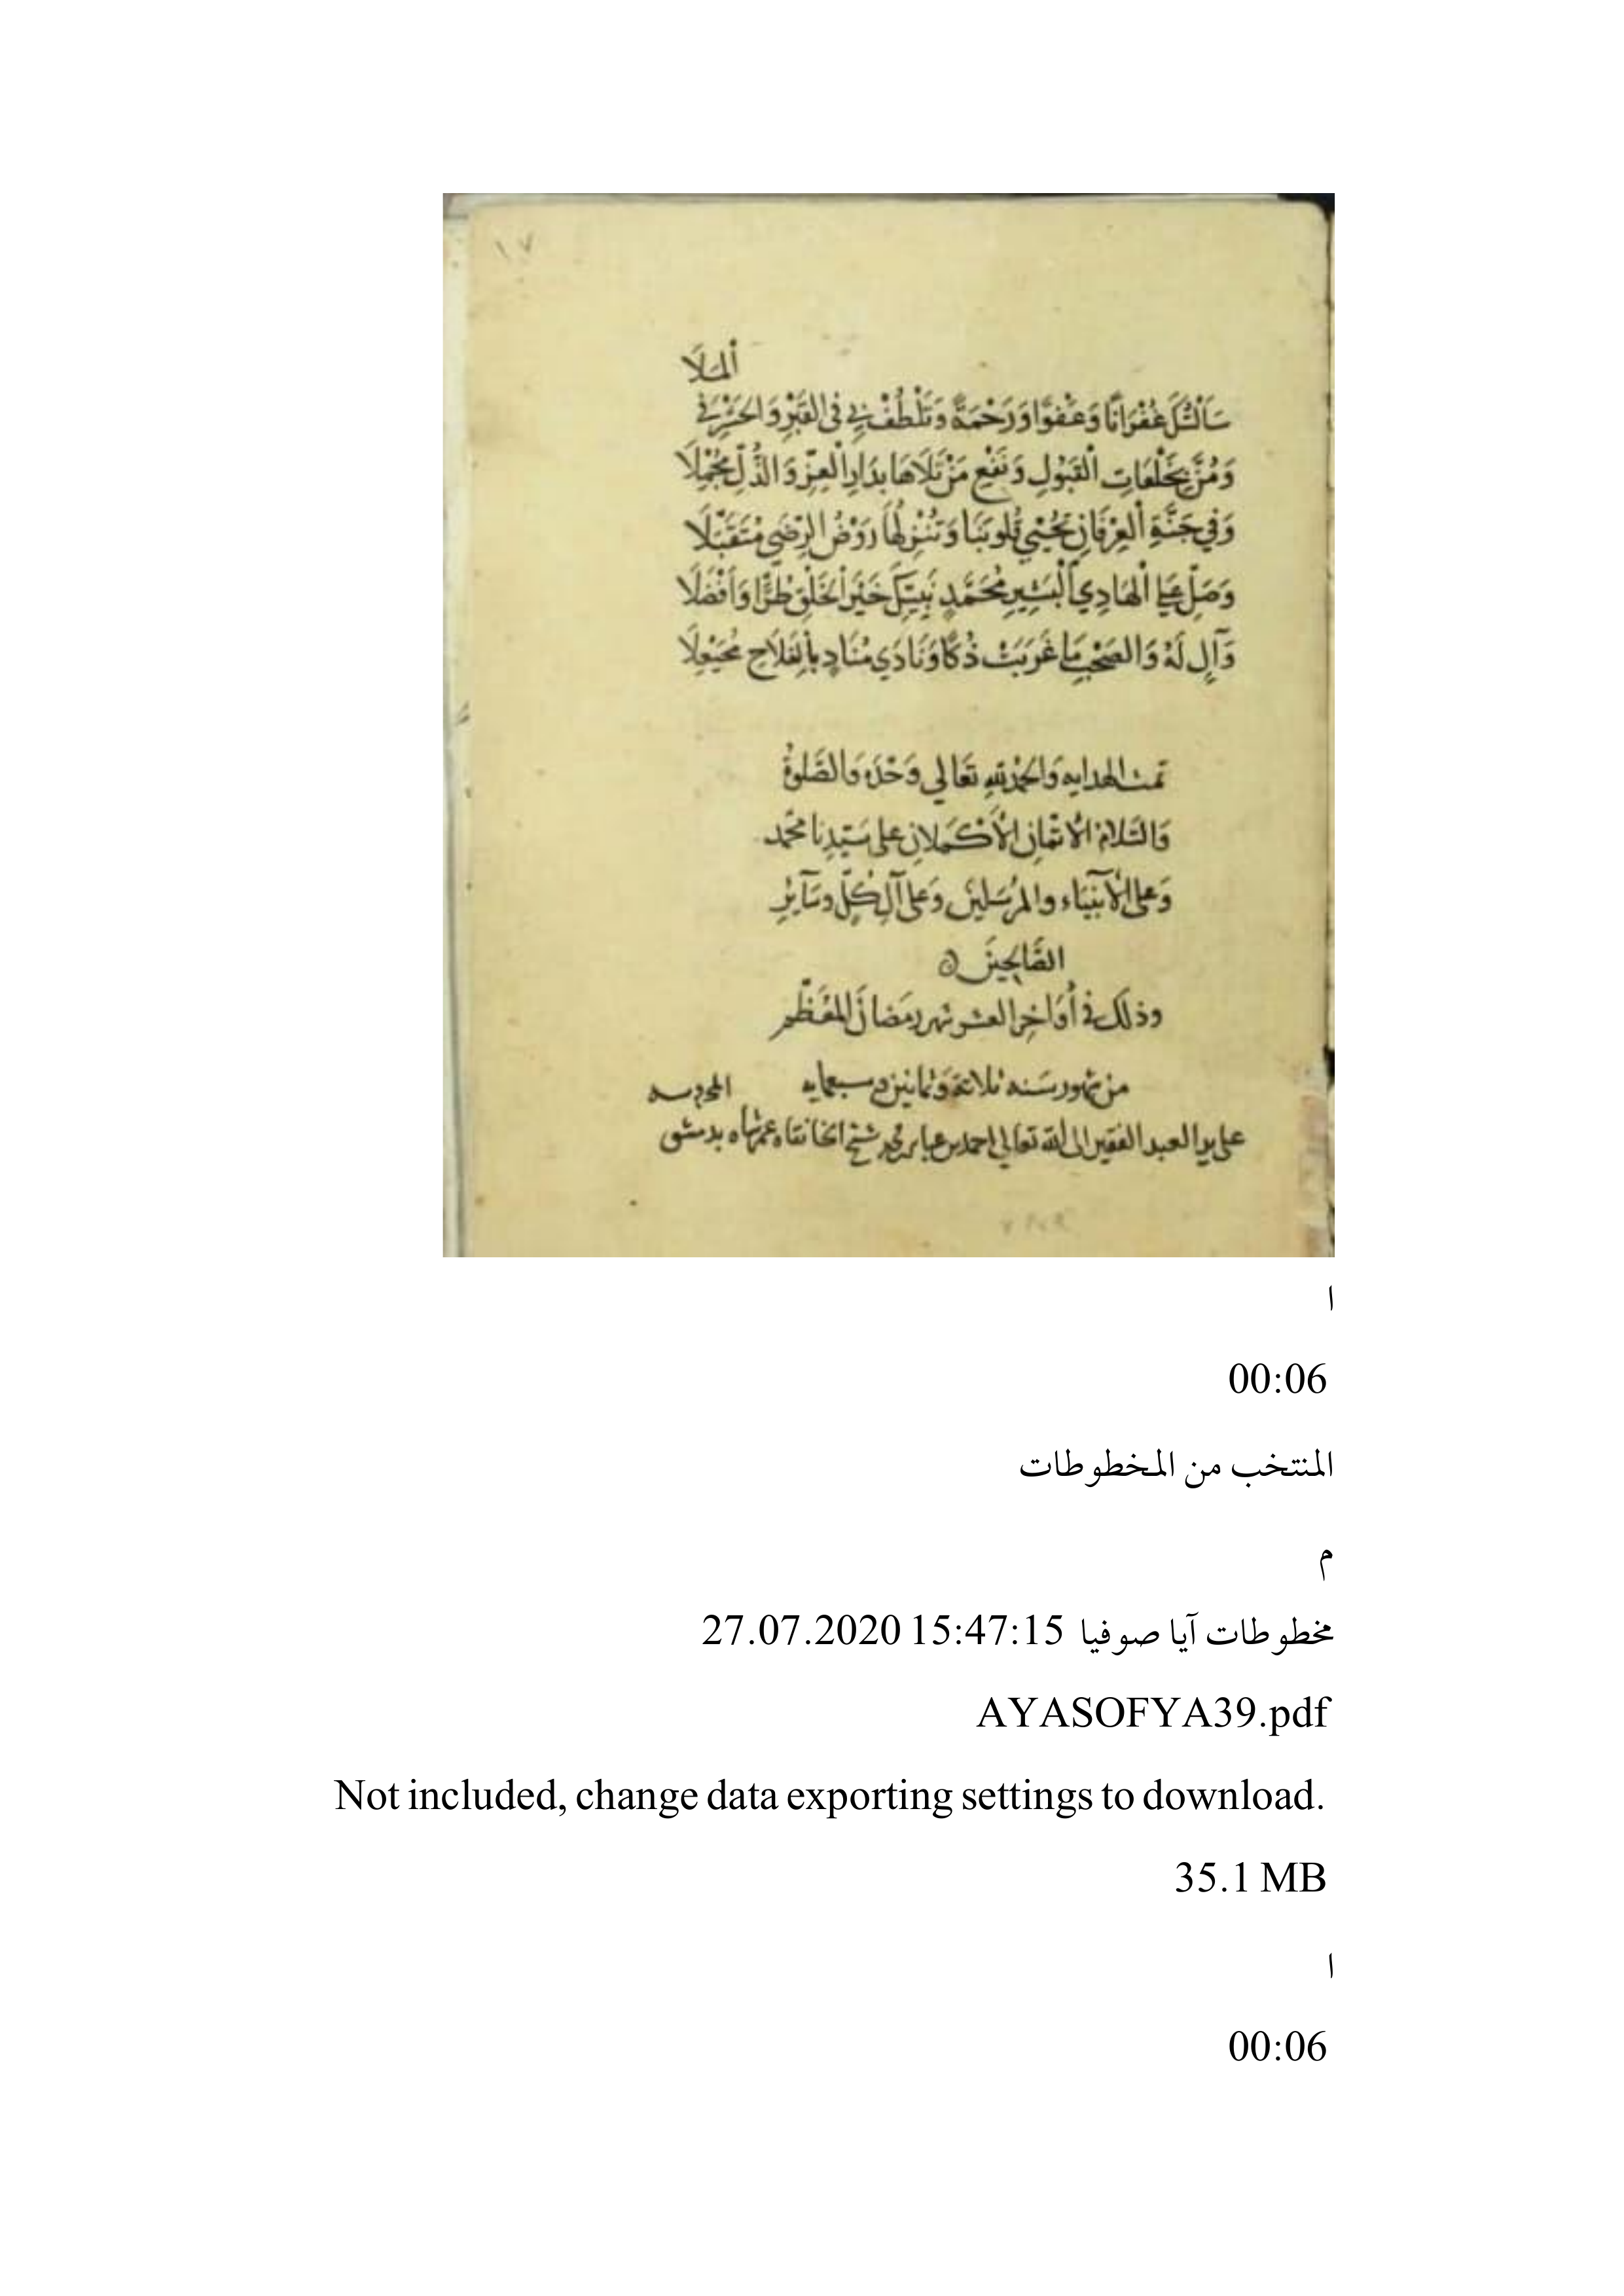 ١٧
اَلْمَلَا
سَأَلْتُكَ غُفْرَانًا وَعَفْوًا وَرَحْمَةً وَتَلْطُفْ بِي فِي القَبْرِ وَالحَشْرِ فِي
وَمُنَّ بِخِلْعَاتِ الْقَبُولِ وَنَفْعِ مَنْ تَلَاهَا بِدَارِ الْعِزِّ وَالذُّلِّ مُجْمِلَا
وَفِي جَنَّةِ الْعِرْفَانِ تُحْيِي قُلُوبَنَا وَتُنْزِلُهَا رَوْضُ الرِّضَى مُتَقَبِّلَا
وَصَلِّ عَلَى الْهَادِي الْبَشِيرِ مُحَمَّدٍ نَبِيِّكَ خَيْرِ الْخَلْقِ طُرًّا وَأَفْضَلَا
وَآلٍ لَهُ وَالصَّحْبِ مَا غَرَبَتْ ذُكَا وَنَادَى مُنَادٍ بِالْفَلَاحِ مُحَيْعِلَا
تمت الهدايه وَالحَمْدُ لِلّهِ تَعَالي وَحْدَه وَالصَّلوةُ
وَالسَّلامُ الأتمَّانِ الأَكْمَلانِ على سَيّدِنا محمد
وَعلى الأنبيَاء والمرُسَلينَ وَعلى آلِ كُلٍّ وسَآئِرِ
الصَّالِحِينَ
وذلك في أَوَاخِر العشر شهر رمَضانَ المُعَظَّمِ
من شهور سَنه ثلاثة وَثمانين وسبعمايه
على يد العبد الفقير إلى الله تعالي احمد بن شيخ الخانقاه عمرشاه بدمشق
ا
00:06
المنتخب من المخطوطات
م
مخطوطات آيا صوفيا 27.07.2020 15:47:15
AYASOFYA39.pdf
Not included, change data exporting settings to download.
35.1 MB
ا
00:06